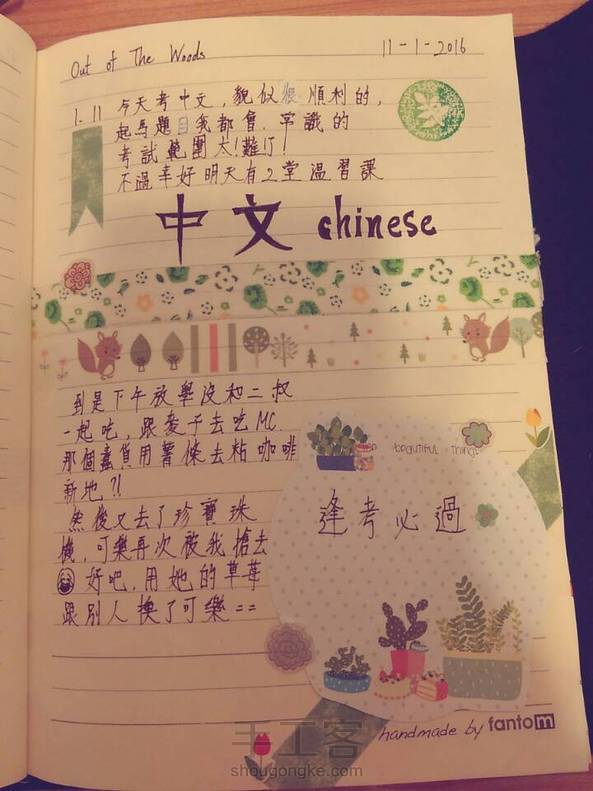 Out of The Woods
11-1-2016
1.11 今天考中文，貌似很順利的，
起馬題目我都會，常識的
考試範圍太!難了!
不過幸好明天有2堂溫習課
中文 chinese
到是下午放學沒和二叔
一起吃，跟麥子去吃MC.
那個蠢貨用薯條去粘咖啡
新地?!
然後又去了珍寶珠
機，可樂再次被我搶去
好吧，用她的草莓
跟別人換了可樂==
beautiful things
逢考必過
handmade by fantom
手工客
shougongke.com